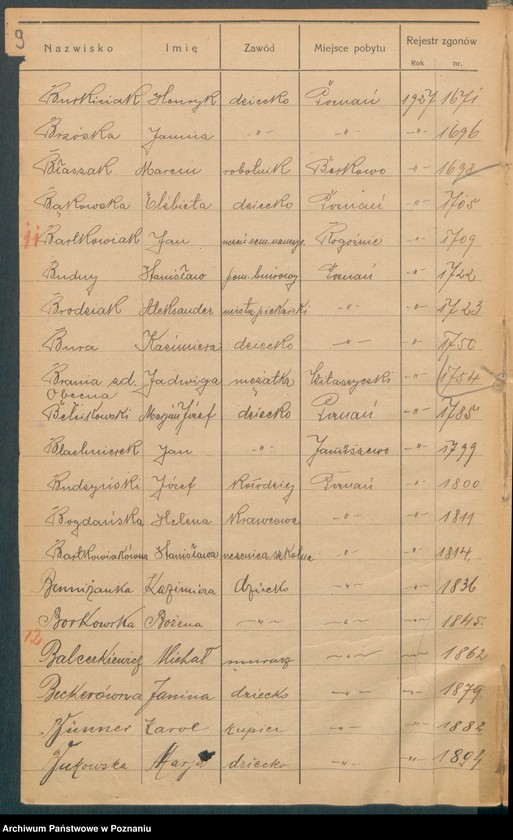 9
Nazwisko Imię Zawód Miejsce pobytu Rejestr zgonów
Rok nr.
Burkiciak Henryk dziecko Poznań 1927 1671
Brzóska Janina -"- -"- -"- 1696
Błaszak Marcin robotnik Berkowo -"- 1698
Bąkowska Elżbieta dziecko Poznań -"- 1705
11 Bartkowiak Jan uczeń sem. naucz. Rogoźno -"- 1709
Budny Stanisław pom. biurowy Poznań -"- 1722
Brodziak Aleksander mistrz piekarski -"- -"- 1723
Bura Kazimiera dziecko -"- -"- 1750
Brania zd. Jadwiga mężatka Witaszyczki -"- 1754
Obecna
Marjan Józef dziecko Poznań -"- 1785
Jan -"- Januszewo -"- 1799
Budzyński Józef kołodziej Poznań -"- 1800
Bogdańska Helena krawcowa -"- -"- 1811
Bartkowiakówna Stanisława uczenica szkolna -"- -"- 1814
Kazimiera dziecko -"- -"- 1836
Borkowska Bożena -"- -"- -"- 1845
12
Balcerkiewicz Michał murarz -"- -"- 1862
Beckerówna Janina dziecko -"- -"- 1879
Karol kupiec -"- -"- 1882
Bukowska Marja dziecko -"- -"- 1894
Archiwum Państwowe w Poznaniu